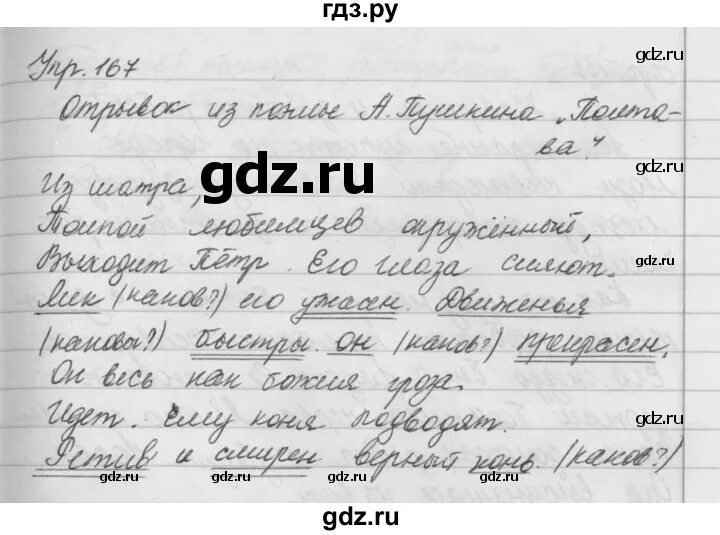 гдз.ру
gdz.ru
Упр. 167
gdz.ru
Отрывок из поэмы А. Пушкина „Полта-
ва“
gdz.ru
Из шатра,
gdz.ru
Толпой любимцев окружённый,
Выходит Пётр. Его глаза сияют.
gdz.ru
gdz.ru
Лик (каков?) его ужасен. Движенья
(каковы?) быстры. Он (каков?) прекрасен,
Он весь как божия гроза.
gdz.ru
gdz.ru
Идёт. Ему коня подводят.
Ретив и смирен верный конь (каков?)
gdz.ru
gdz.ru
gdz.ru